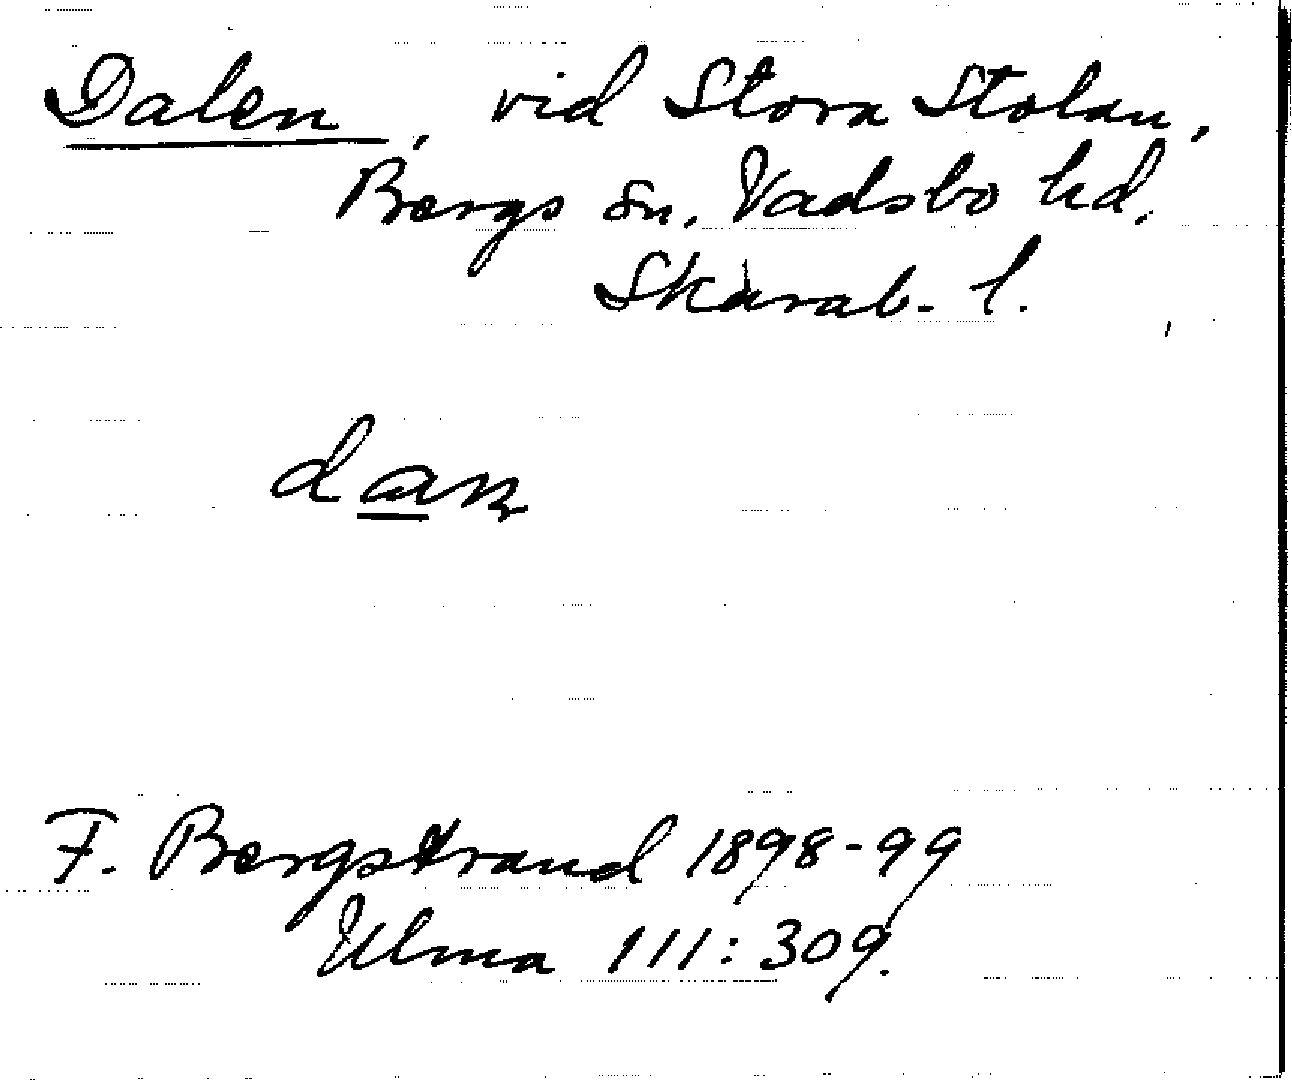 Dalen, vid Stora Stolan,
Bergs sn. Vadsbo hd.
Skarab. l.
F. Bergstrand 1898-99
Ulma 111:309.